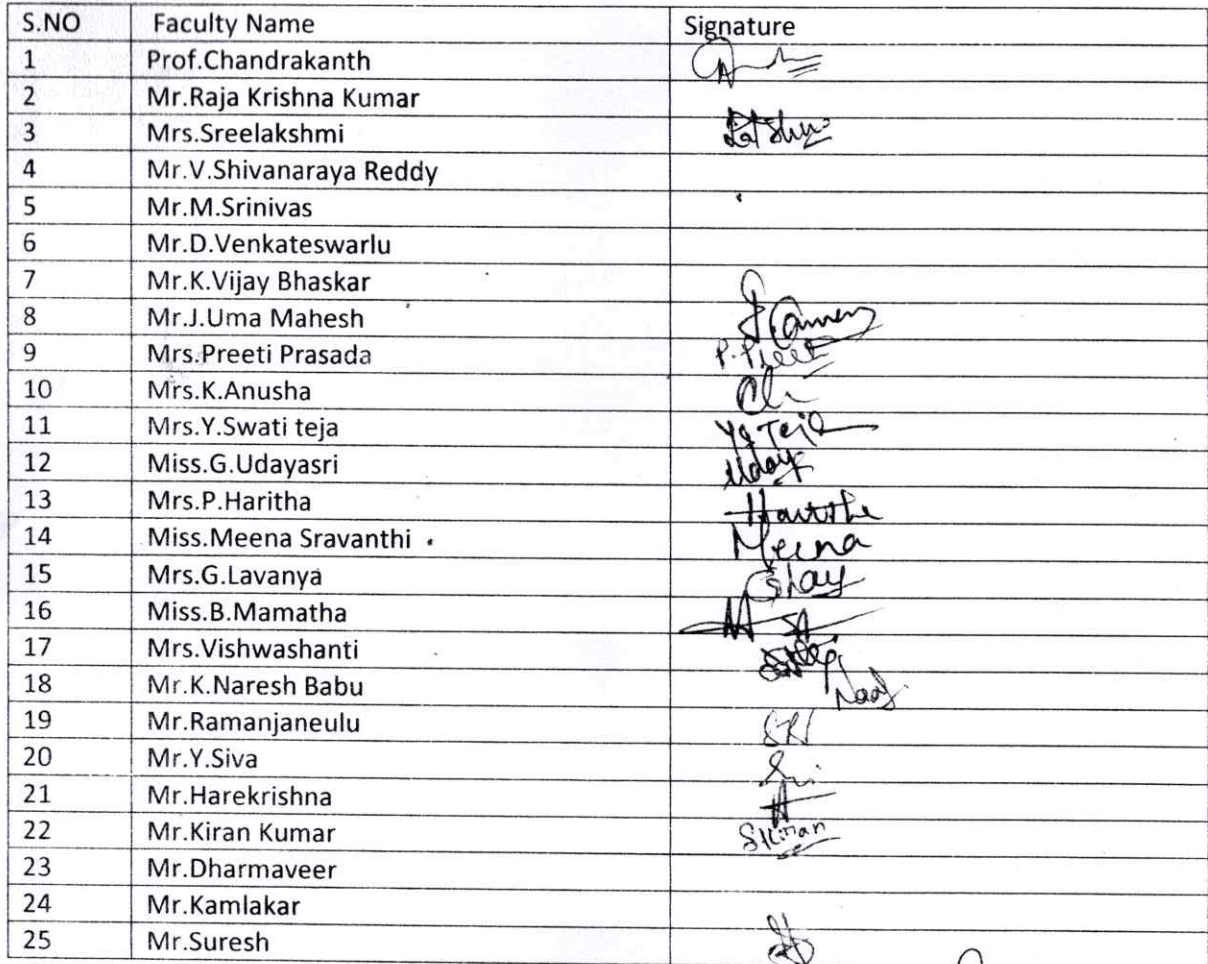 S.NO Faculty Name Signature
1 Prof.Chandrakanth
2 Mr.Raja Krishna Kumar
3 Mrs.Sreelakshmi
4 Mr.V.Shivanaraya Reddy
5 Mr.M.Srinivas
6 Mr.D.Venkateswarlu
7 Mr.K.Vijay Bhaskar
8 Mr.J.Uma Mahesh
9 Mrs.Preeti Prasada P.Preeti
10 Mrs.K.Anusha
11 Mrs.Y.Swati teja Y.S Teja
12 Miss.G.Udayasri Uday
13 Mrs.P.Haritha Haritha
14 Miss.Meena Sravanthi Meena
15 Mrs.G.Lavanya GLav
16 Miss.B.Mamatha
17 Mrs.Vishwashanti
18 Mr.K.Naresh Babu
19 Mr.Ramanjaneulu
20 Mr.Y.Siva
21 Mr.Harekrishna
22 Mr.Kiran Kumar SKiran
23 Mr.Dharmaveer
24 Mr.Kamlakar
25 Mr.Suresh